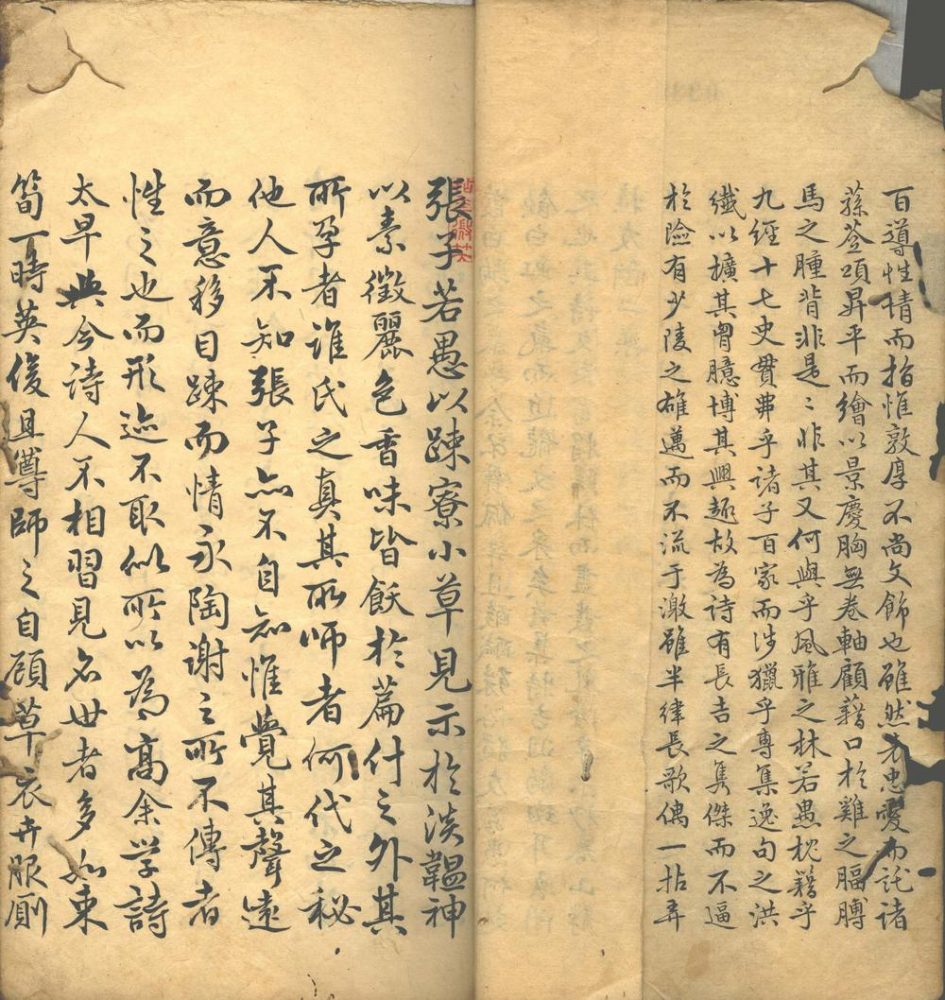 百導性情而指惟敦厚不尚文飾也雖然老忠愛而託諸
蓀荃頌昇平而繪以景慶胸無卷軸顧藉口於雞之膈膊
馬之腫背非是〻非其又何與乎風雅之林若愚枕藉乎
九經十七史貫弗乎諸子百家而涉獵乎專集逸句之洪
纖以擴其胷臆博其興趣故為詩有長吉之雋傑而不逼
於險有少陵之雄邁而不流于激雖半律長歌偶一拈弄
張子若愚以踈寮小草見示於淡韞神
以素徵麗色香味皆飫於篇付之外其
所孕者誰氏之真其所師者何代之秘
他人不知張子亦不自知惟覺其聲遠
而意移目踈而情永陶謝之所不傳者
性之也而形迹不取似所以為高余学詩
太早與今詩人不相習見名世者多如束
筍一時英俊且尊師之自顧草衣卉服劂